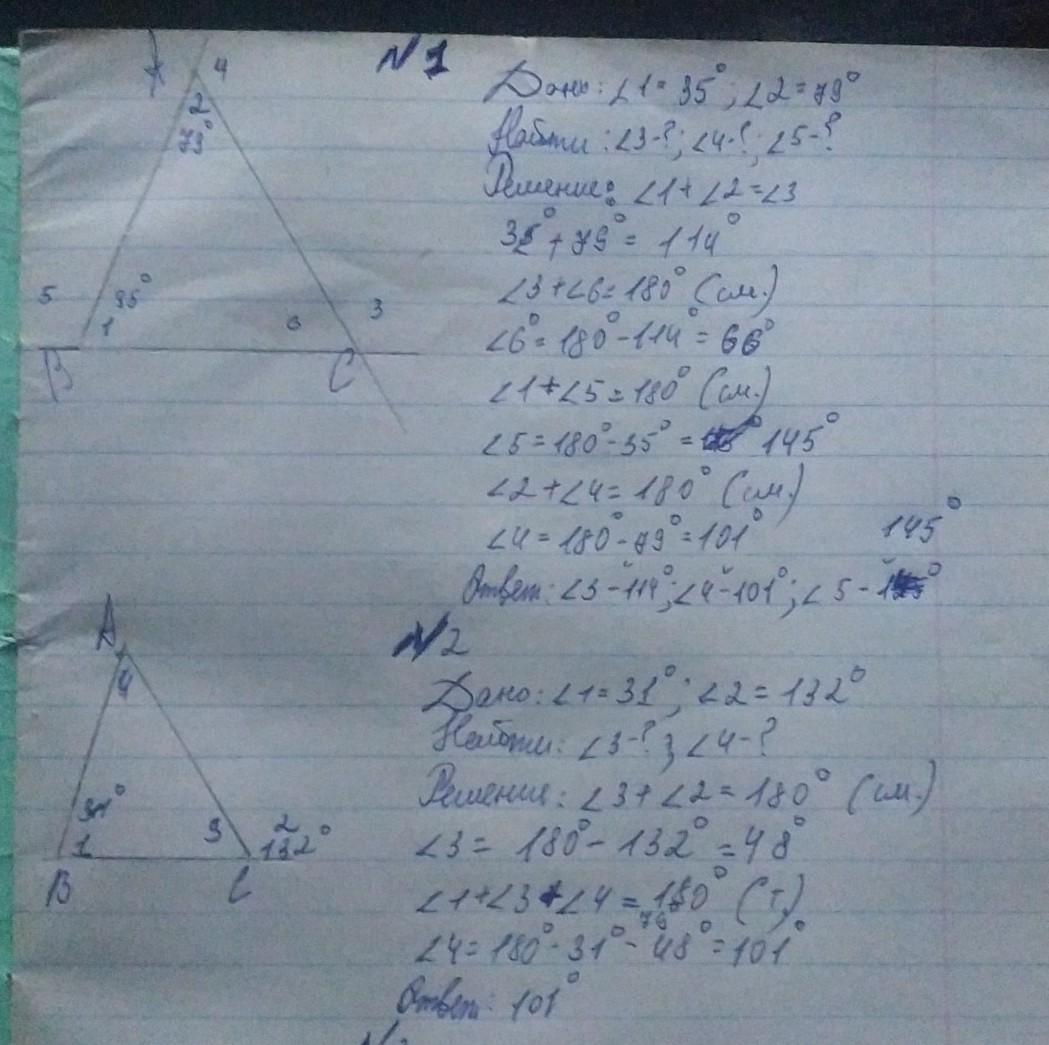 N 1
A 4
2
79°
5 35° 6 3
1
B C
Дано: ∠1 = 35°; ∠2 = 79°
Найти: ∠3-?; ∠4-?; ∠5-?
Решение: ∠1 + ∠2 = ∠3
35° + 79° = 114°
∠3 + ∠6 = 180° (см.)
∠6° = 180° - 114° = 66°
∠1 + ∠5 = 180° (см.)
∠5 = 180° - 35° = 145°
∠2 + ∠4 = 180° (см.)
∠4 = 180° - 79° = 101°
145°
Ответ: ∠3 - 114°; ∠4 - 101°; ∠5 -
N 2
A
4
31° 3 2
1 132°
B C
Дано: ∠1 = 31°; ∠2 = 132°
Найти: ∠3-?; ∠4-?
Решение: ∠3 + ∠2 = 180° (см.)
∠3 = 180° - 132° = 48°
∠1 + ∠3 + ∠4 = 180° (т.)
79
∠4 = 180° - 31° - 48° = 101°
Ответ: 101°